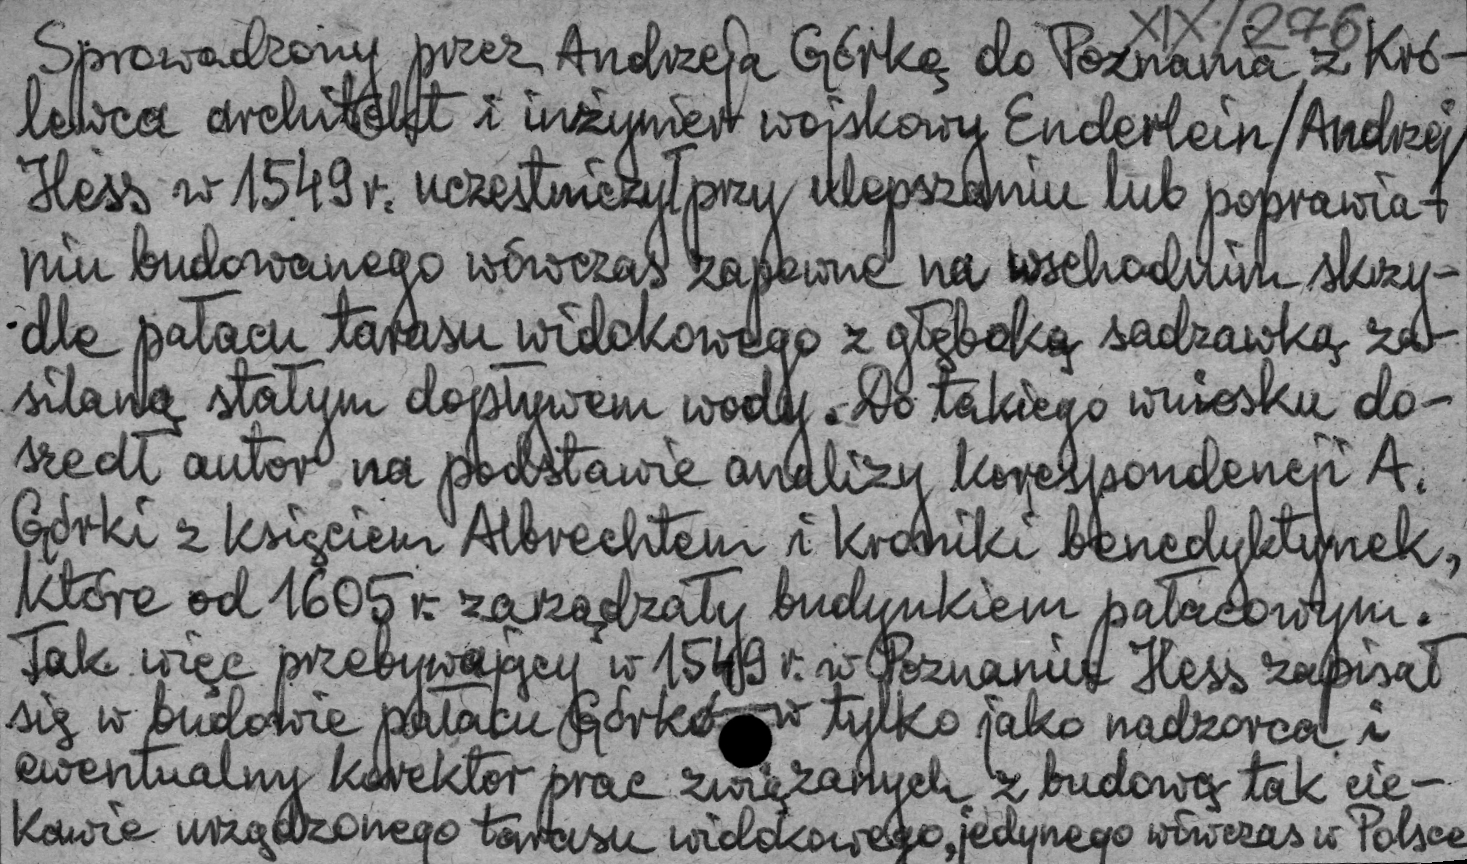 XIX/276
Sprowadzony przez Andrzeja Górkę do Poznania z Kró-
lewca architekt i inżynier wojskowy Enderlein/Andrzej/
Hess w 1549 r. uczestniczył przy ulepszaniu lub poprawia-
niu budowanego wówczas zapewne na wschodnim skrzy-
dle pałacu tarasu widokowego z głęboką sadzawką za-
silaną stałym dopływem wody. Do takiego wniosku do-
szedł autor na podstawie analizy korespondencji A.
Górki z księciem Albrechtem i kroniki benedyktynek,
które od 1605 r. zarządzały budynkiem pałacowym.
Tak więc przebywający w 1549 r. w Poznaniu Hess zapisał
się w budowie pałacu Górkó-w tylko jako nadzorca i
ewentualny korektor prac związanych z budową tak cie-
kawie urządzonego tarasu widokowego, jedynego wówczas w Polsce